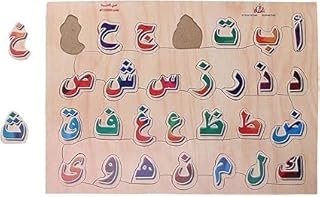 أ ب ت ج ح
خ
د ذ ر ز س ش ص
ض ط ظ ع غ ف ق
ث
ك ل م ن هـ و ي